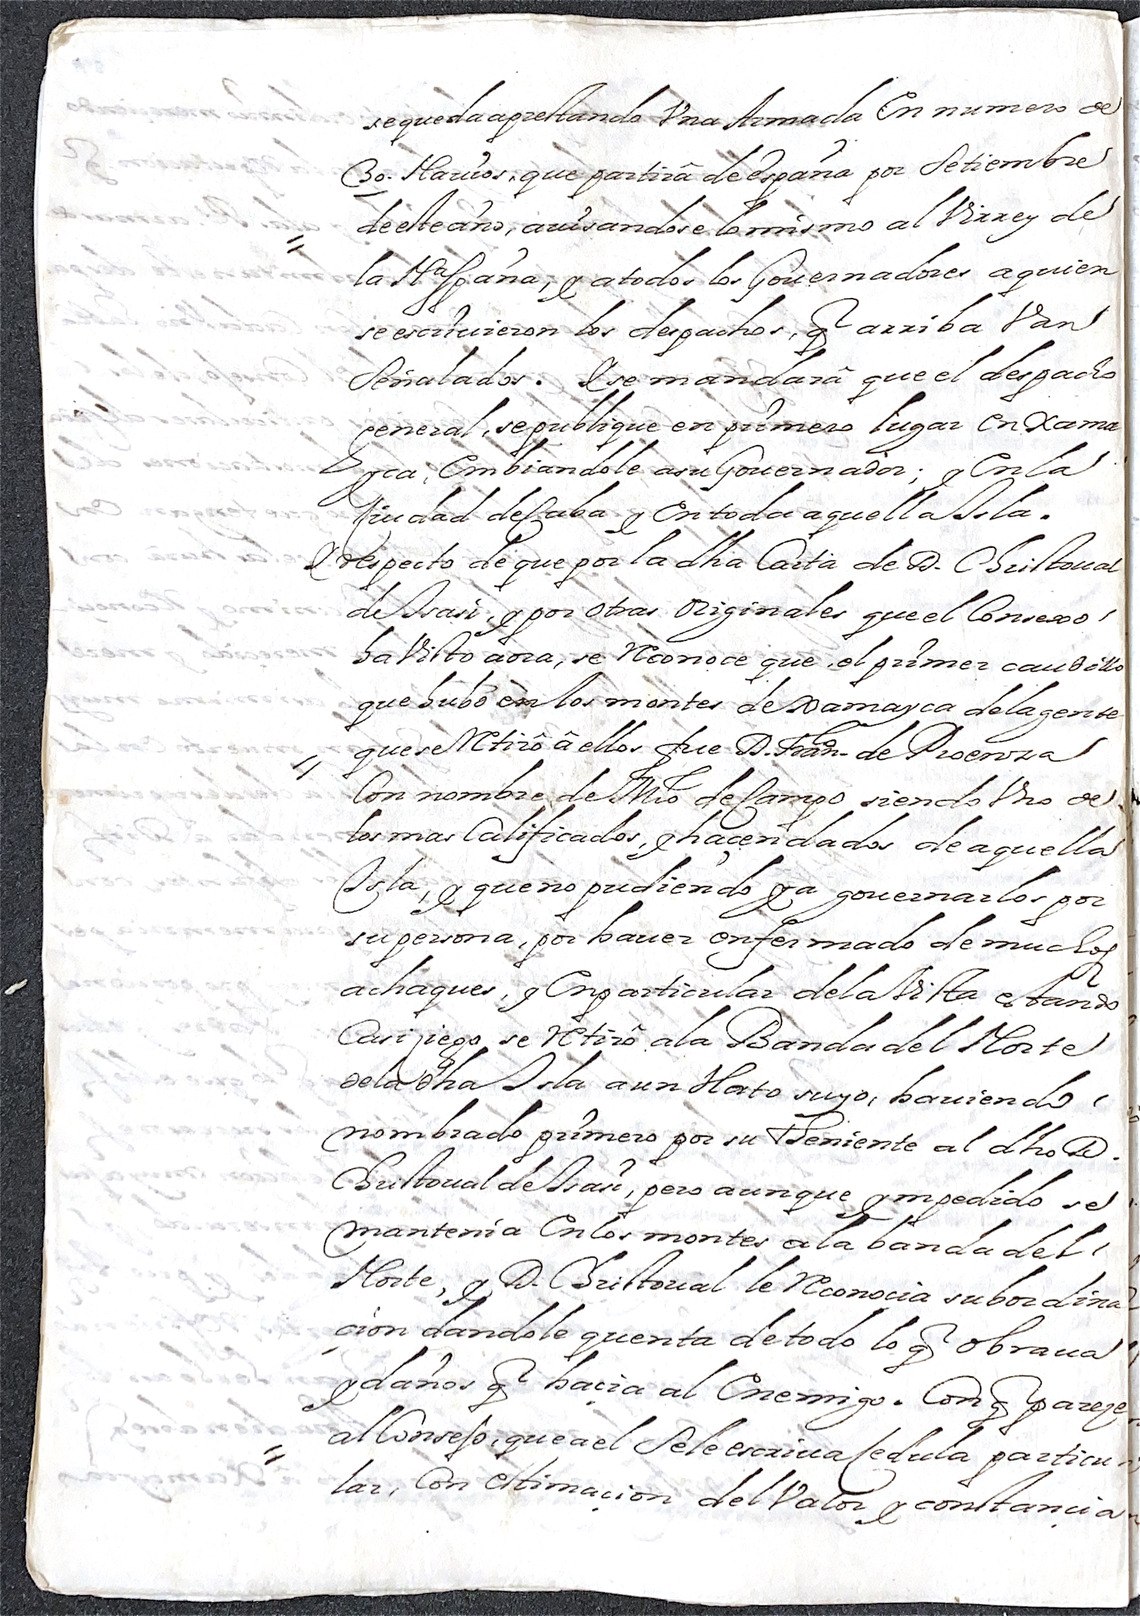 se queda aprestando Vna Armada En numero de
30. Nauios, que partirâ de españa por Setiembre
de este año, auisandose lo mismo al Virrey de
la Nª españa, y a todos los Gouernadores a quien
se escriuieron los despachos, q̃ arriba Van
Señalados. Y se mandarâ que el despacho
general, se publique en primero lugar en Xama
yca, Embiandole a su Gouernador; y En la
Ciudad de Cuba y En toda aquella Isla.
Y respecto de que por la dha Carta de D. Christoual
de Isasi, y por otras originales que el Consexo
ha Visto aora, se Reconoce que el primer caudillo
que hubo en los montes de Xamayca de la gente
que se Retirô â ellos fue D. Fran.co de Proenza
Con nombre de Mro de Campo siendo Vno de
los mas Calificados, y haçendados de aquella
Isla, y que no pudiendo ya gouernarlos por
su persona, por hauer enfermado de muchos
achaques, y En particular de la Vista estando
Casi ziego, se Retirô a la Banda del Norte
de la dha Isla a un Hato suyo, hauiendo
nombrado primero por su Theniente al dho D.
Christoual de Isasi, pero aunque ympedido se
mantenia En los montes a la banda del
Norte, y D. Christoual le Reconocia subordina
çion dandole quenta de todo lo q̃ obraua
y daños q̃ haçia al Enemigo. Con q̃ pareçe
al Consejo, que a el Se le escriua Cedula particu
lar, Con estimaçion del Valor y constançia